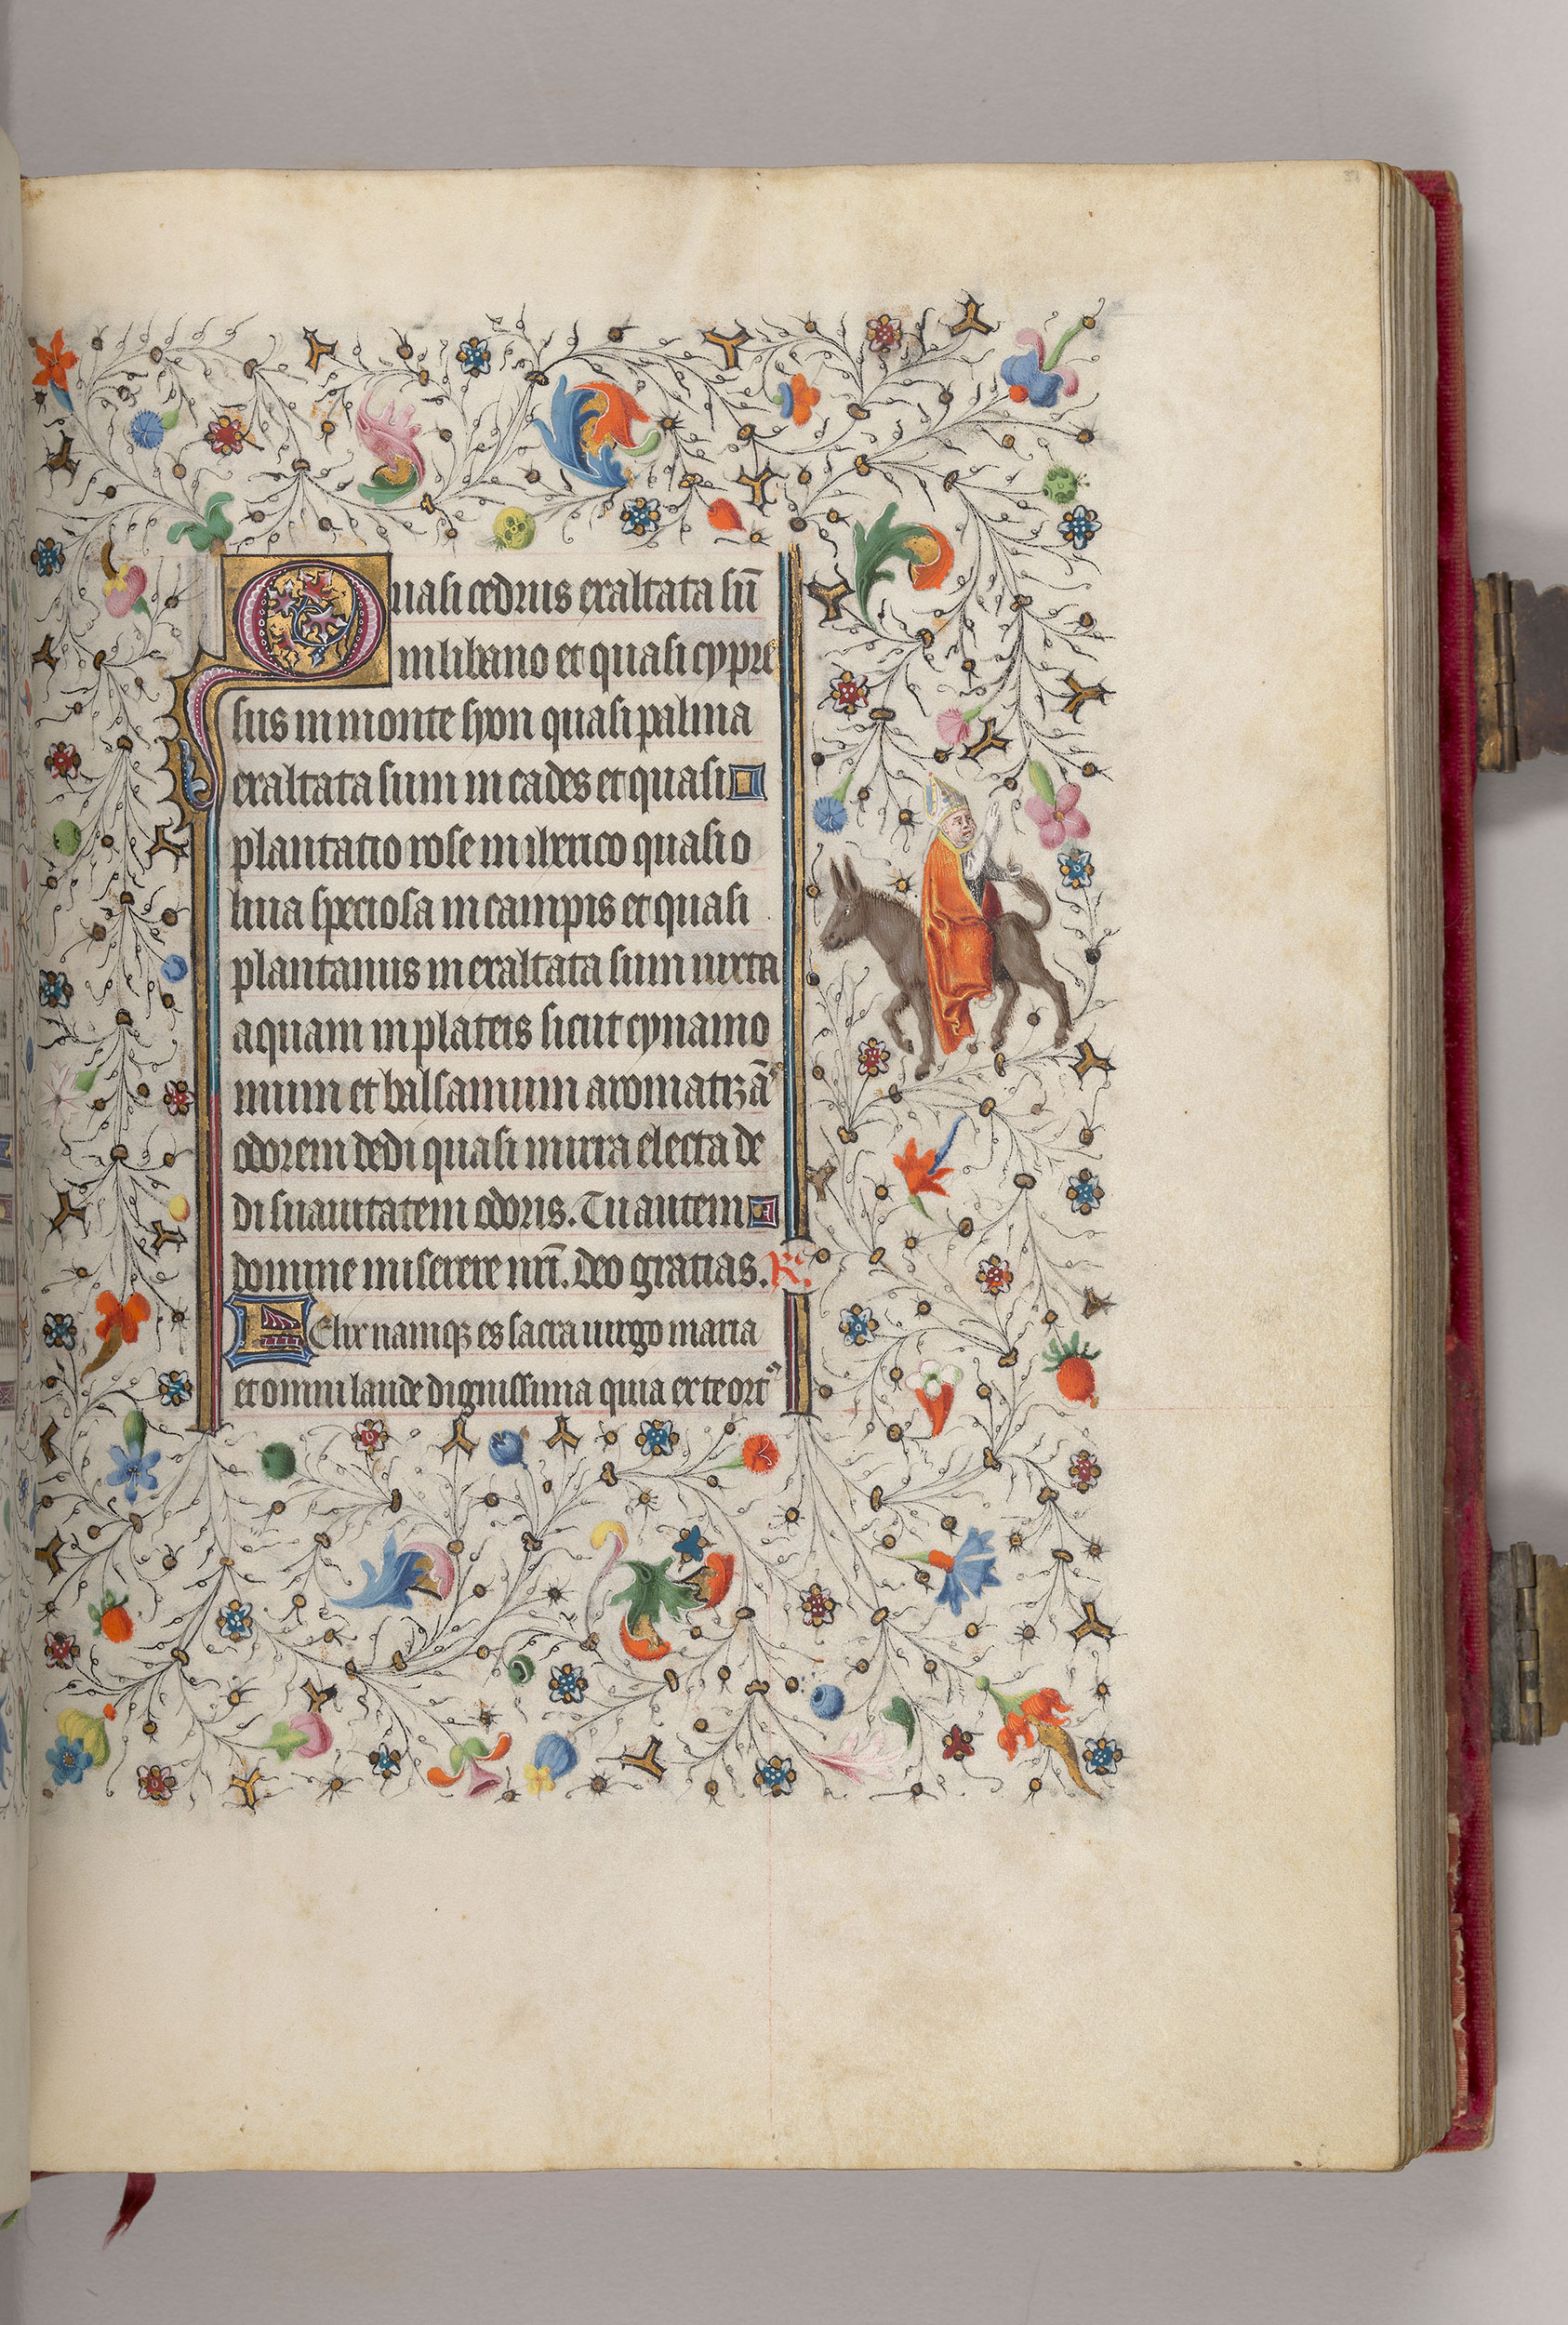 Quasi cedrus exaltata sū
in libano et quasi cypre
sus in monte syon quasi palma
exaltata sum in cades et quasi
plantatio rose in iherico quasi o
liua speciosa in campis et quasi
plantanus in exaltata sum iuxta
aquam in plateis sicut cynamo
mum et balsamum aromatizā
odorem dedi quasi mirra electa de
di suauitatem odoris. Tu autem
domine miserere nrī. deo gratias. R.
Felix namq; es sacra uirgo maria
et omni laude dignissima quia ex te ort